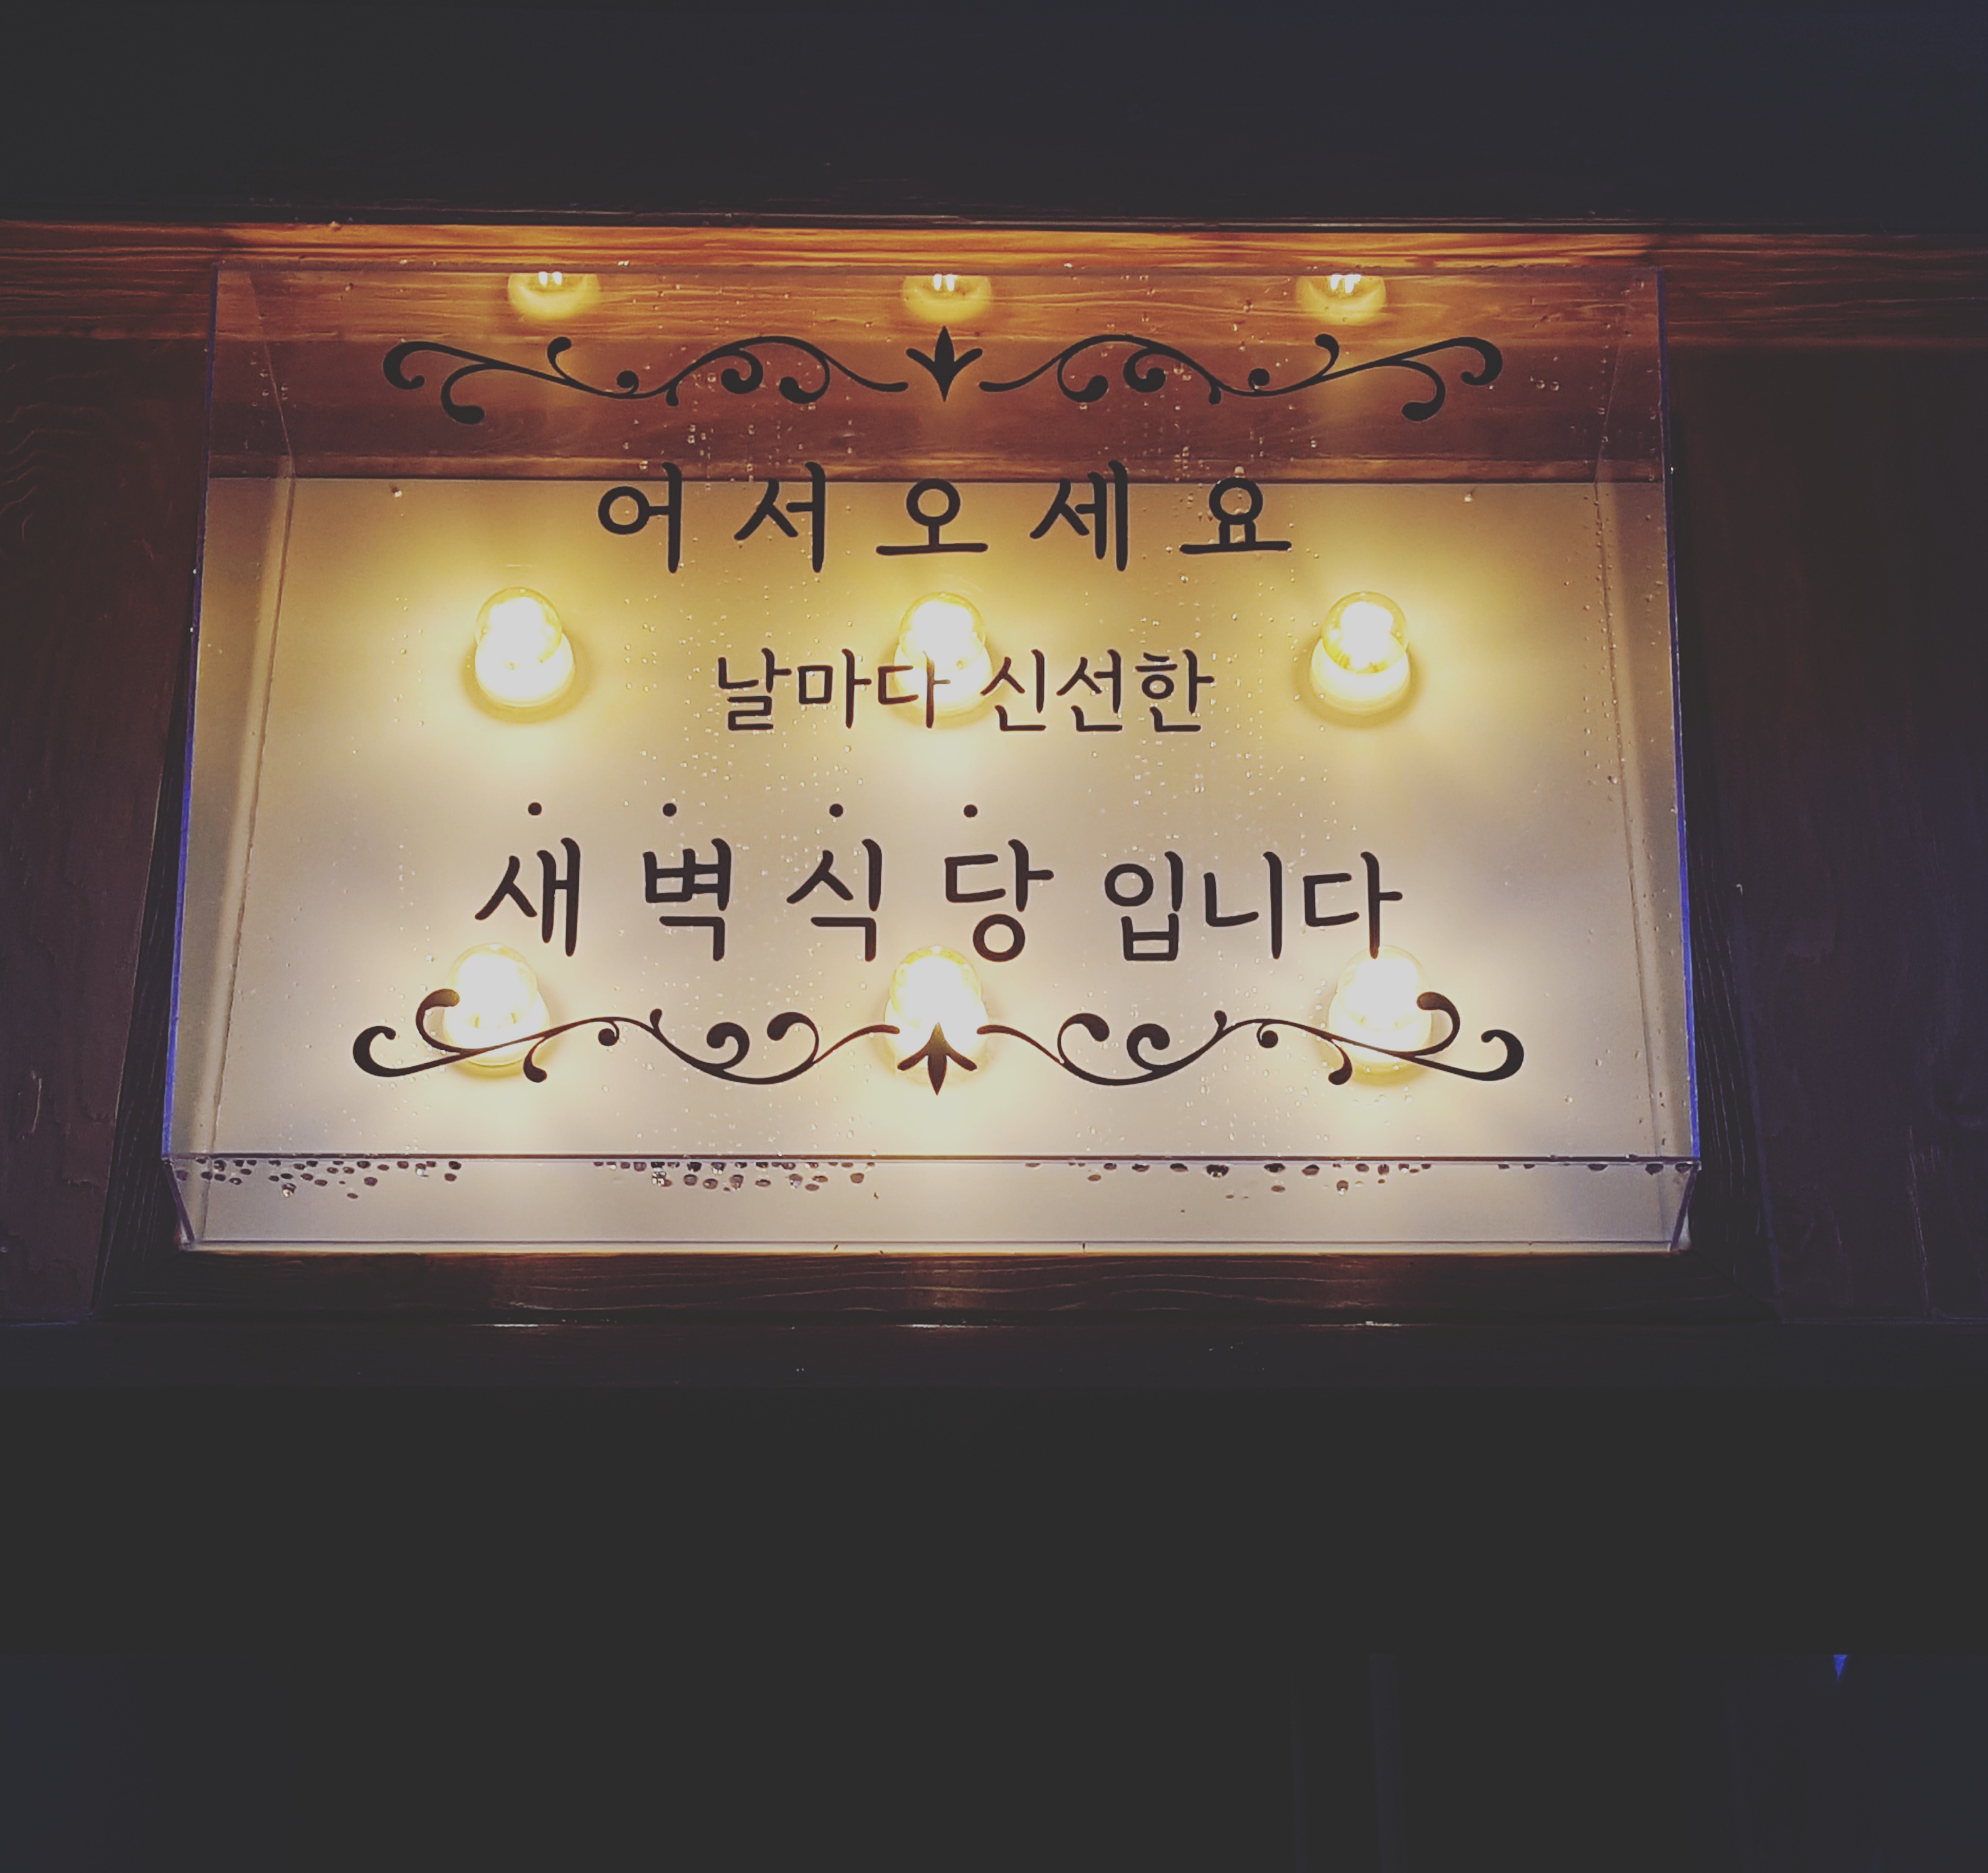 어서오세요
날마다 신선한
새벽식당 입니다